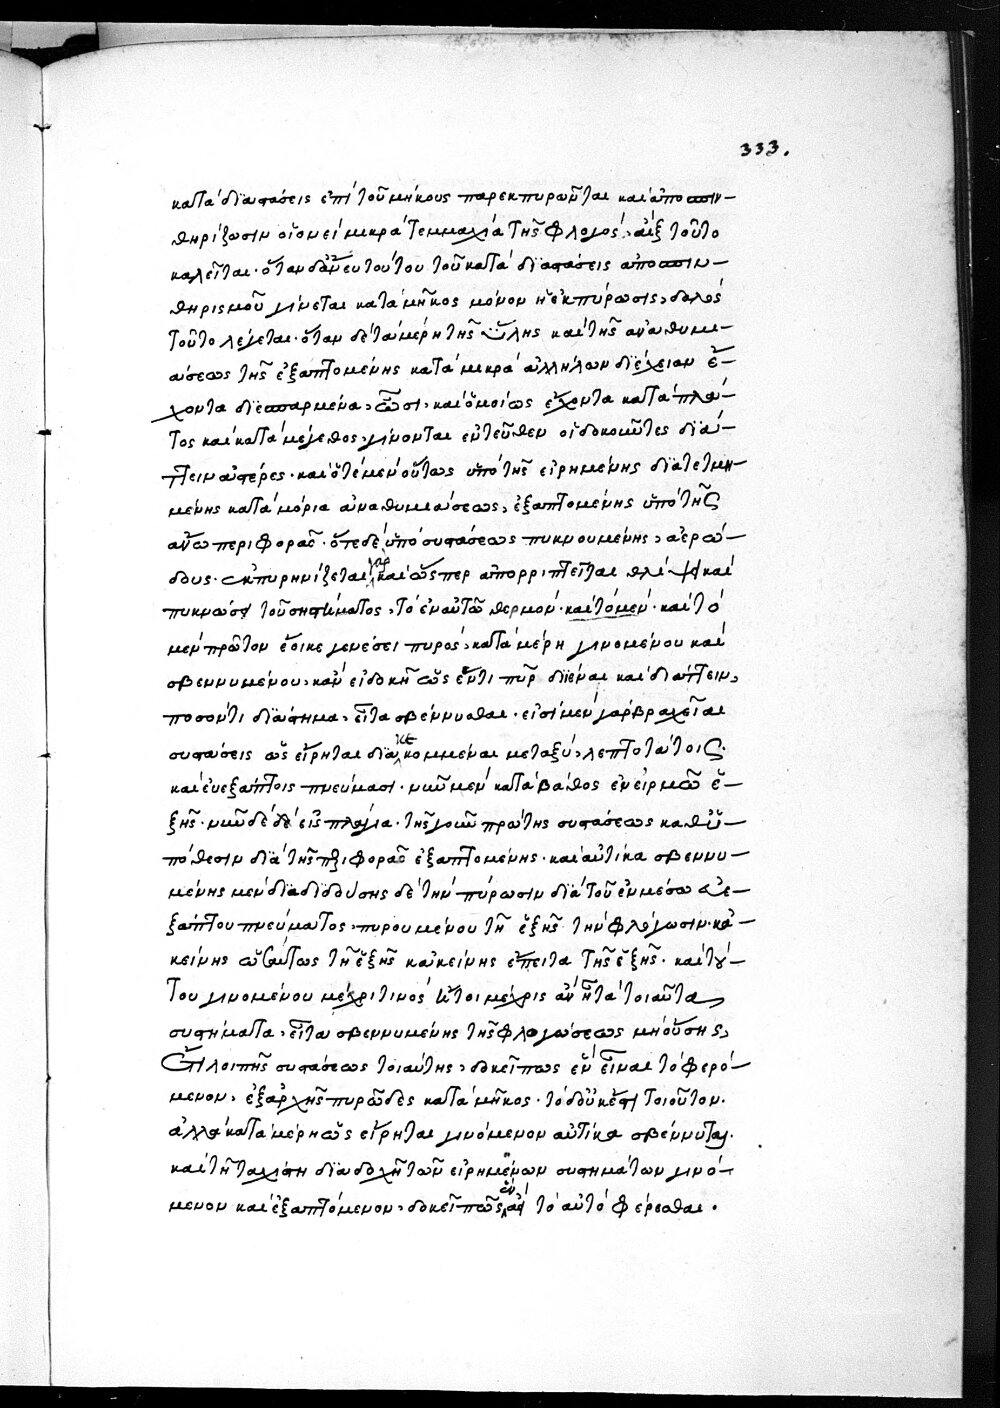 333.
κατὰ διαστάσεις ἐπὶ τοῦ μήκους παρεκπυρῶνται καὶ ἀποσπιν-
θηρίζωσιν οἱονεὶ μικρὰ τεμμάχια τῆς φλογὸς, αἲξ τοῦτο
καλεῖται· ὅταν δ' ἄνευ τούτου τοῦ κατὰ διαστάσεις ἀποσπιν-
θηρισμοῦ γίνεται κατὰ μῆκος μόνον ἡ ἐκπύρωσις, δαλὸς
τοῦτο λέγεται· ὅταν δὲ τὰ μέρη τῆς ὕλης καὶ τῆς ἀναθυμι-
άσεως τῆς ἐξαπτομένης κατὰ μικρὰ ἀλλήλων διέχειαν ἔ-
χοντα διεσπαρμένα, ὦσι, καὶ ὁμοίως ἔχοντα κατὰ πλά-
τος καὶ κατὰ μέγεθος, γίνονται ἐντεῦθεν οἱ δοκοῦντες διάτ-
τειν ἀστέρες· καὶ ὁτὲ μὲν οὕτως ὑπὸ τῆς εἰρημένης διατετμη-
μένης κατὰ μόρια ἀναθυμιάσεως, ἐξαπτομένης ὑπὸ τῆς
ἄνω περιφορᾶς· ὁτὲ δὲ ὑπὸ συστάσεως πυκνουμένης, ἀερώ-
δους· ἐκπυρηνίζεται γὰρ καὶ ὥσπερ ἀπορριπτεῖται θλίψει καὶ
πυκνώσει τοῦ συστήματος, τὸ ἐν αὐτῷ θερμόν· καὶ τὸ μὲν· καὶ τὸ
μὲν πρῶτον ἔοικε γενέσει πυρὸς, κατὰ μέρη γινομένου καὶ
σβεννυμένου, κἂν εἰ δοκῇ ὡς ἕν τι πῦρ διϊέναι καὶ διάττειν,
ποσόν τι διάστημα, εἶτα σβέννυσθαι· εἰσὶ μὲν γὰρ βραχεῖαι
συστάσεις ὡς εἴρηται διακεκομμέναι μεταξὺ, λεπτοτάτοις
καὶ εὐεξάπτοις πνεύμασι· νῦν μὲν κατὰ βάθος ἐν εἱρμῷ ἑ-
ξῆς· νῦν δὲ εἰς πλάγια· τῆς γοῦν πρώτης συστάσεως καθ' ὑ-
πόθεσιν διὰ τῆς περιφορᾶς ἐξαπτομένης· καὶ αὐτίκα σβεννυ-
μένης μὲν διαδιδούσης δὲ τὴν πύρωσιν διὰ τοῦ ἐν μέσῳ εὐε-
ξάπτου πνεύματος, πυρουμένου τῇ ἑξῆς τὴν φλόγωσιν· κἀ-
κείνης ὡσαύτως τῇ ἑξῆς κἀκείνης ἔπειτα τῆς ἑξῆς· καὶ τού-
του γινομένου μέχρι τινὸς ἤτοι μέχρις ἂν ᾖ τὰ τοιαῦτα
συστήματα, εἶτα σβεννυμένης τῆς φλογώσεως μὴ οὔσης,
ἔτι λοιπῆς συστάσεως τοιαύτης, δοκεῖ πως ἓν εἶναι τὸ φερό-
μενον, ἐξ ἀρχῆς πυρῶδες κατὰ μῆκος· τὸ δ' οὐκ ἔστι τοιοῦτον·
ἀλλὰ κατὰ μέρη ὡς εἴρηται γινόμενον αὐτίκα σβέννυται·
καὶ τῇ ταχίστῃ διαδοχῇ τῶν εἰρημένων συστημάτων γινό-
μενον καὶ ἐξαπτόμενον, δοκεῖ πως ἓν καὶ τὸ αὐτὸ φέρεσθαι.